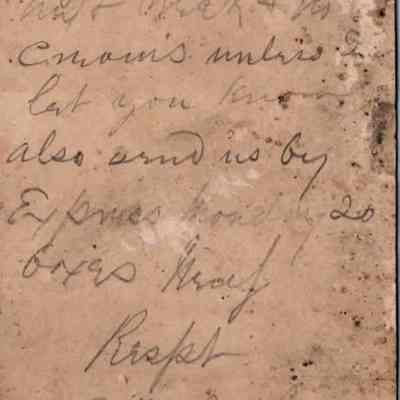 next week & no
unless I
let you know
also send us by
Express Monday 20
boxes
Respt